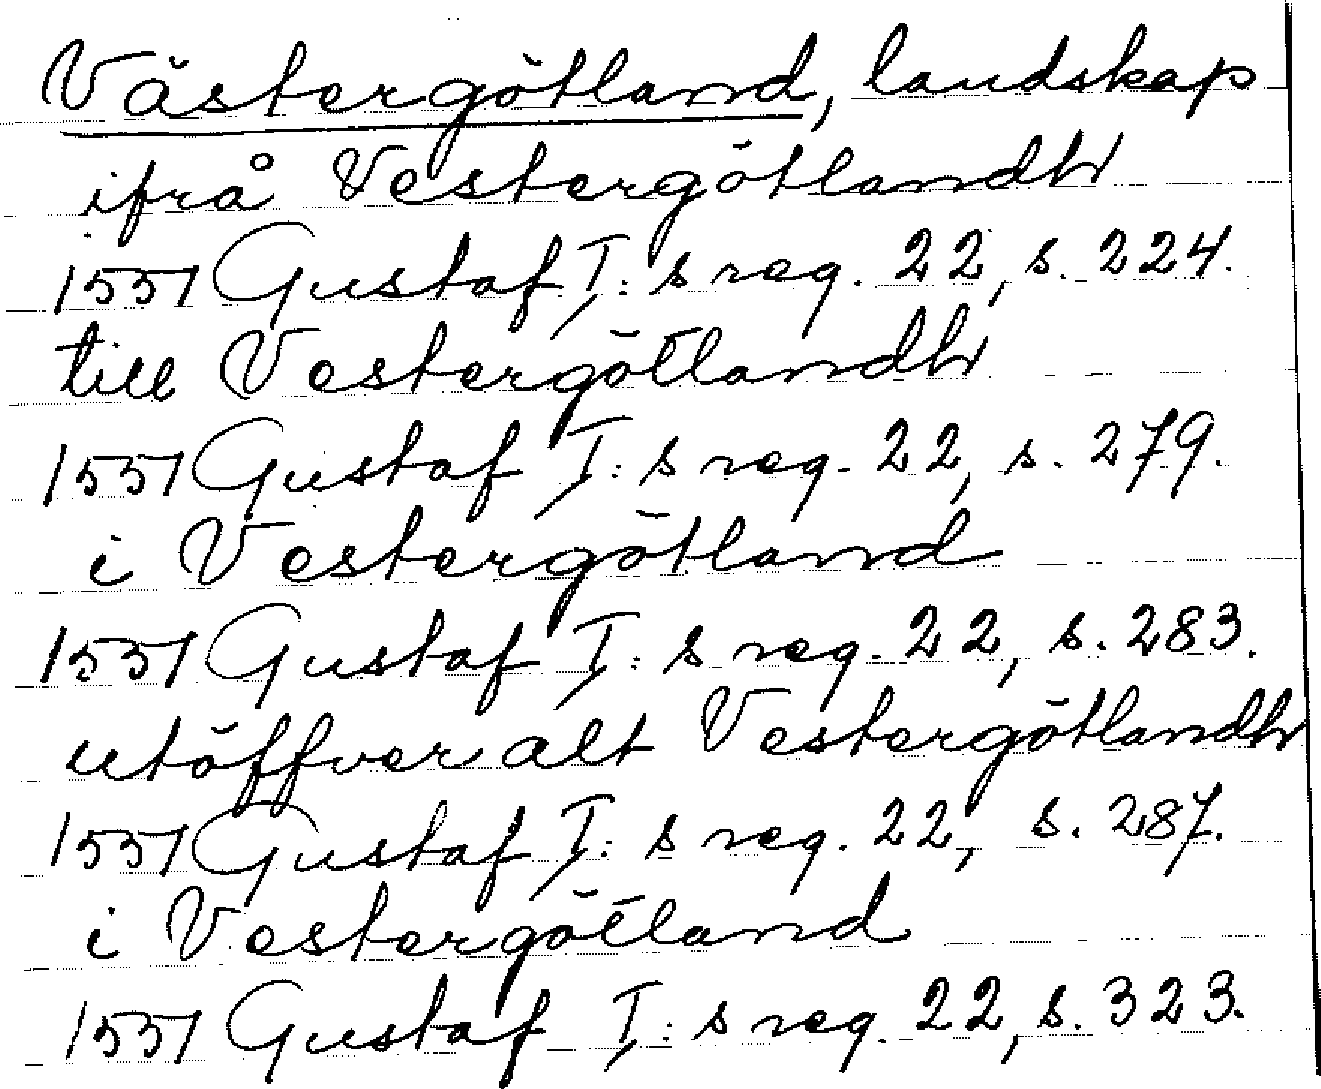 Västergötland, landskap
ifrå Vestergötlandh
1551 Gustaf I: s reg. 22, s. 224.
till Vestergötlandh
1551 Gustaf I: s reg. 22, s. 279.
i Vestergötland
1551 Gustaf I: s reg. 22, s. 283.
utöffver alt Vestergötlandh
1551 Gustaf I: s reg. 22, s. 287.
i Vestergötland
1551 Gustaf I: s reg. 22, s. 323.